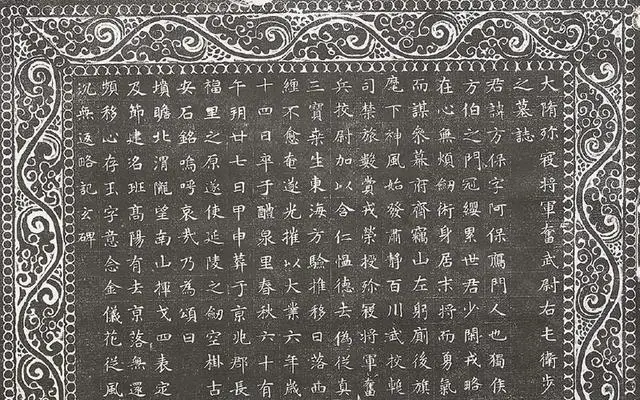 大隋殄寇將軍奮武尉右衛步
之墓誌
君諱方保字阿保鴈門人也獨俟
方伯之門冠纓累世君少閑戎略
在心無煩劒術身居末將而勇氣
而謀參幕府齊竊山左躬廁後旗
麾下神風始發肅静百川武校
司禁旅數賞戎榮授殄寇將軍奮
兵挍尉加以含仁愠德去偽従真
三寶桒生東海方驗推移日落西
纏不愈奄遂光摧以大業六年歲
十四日卒于醴泉里春秋六十有
午朔廿七日甲申葬于京兆郡長
福里之原遂使延陵之劒空掛古
安石銘嗚呼哀哉乃為頌曰
墳瞻北渭隴望南山揮戈四表定
及節建名班高陽有士京落無還
頻移心存王字意念金儀花従風
沉無返略記玄碑